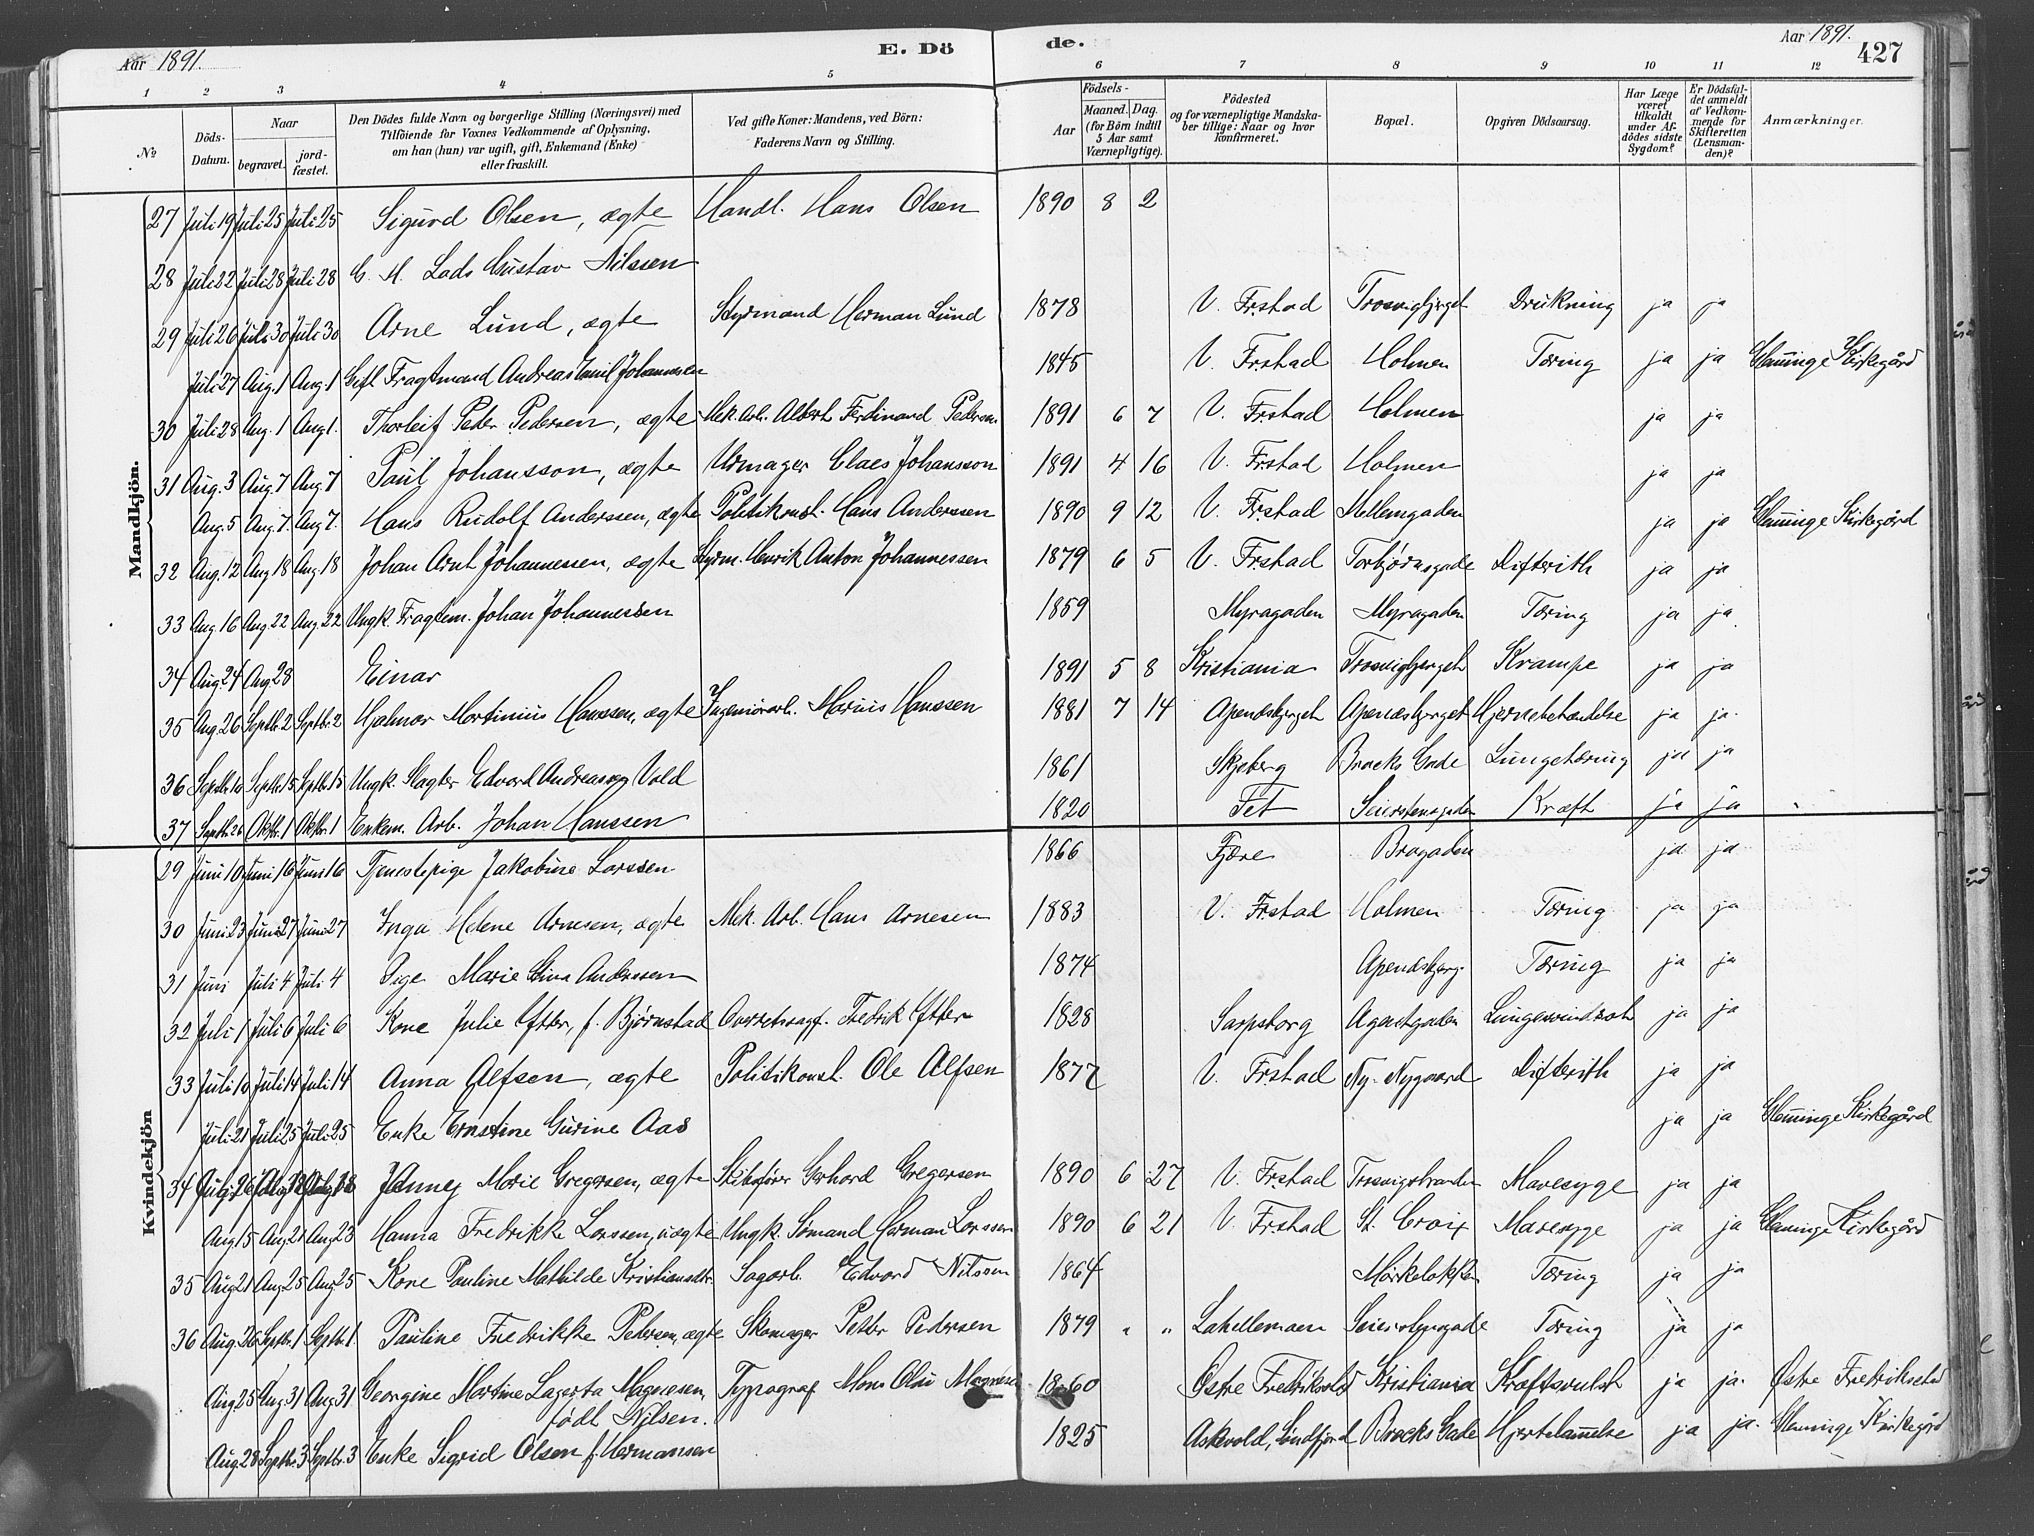 Aar 1891.
E. Dö
de.
Aar 1891.
427
1 2 3 4 5 6 7 8 9 10 11 12
No
Döds-Datum.
Naar
begravet.
jord-fæstet.
Den Dödes fulde Navn og borgerlige Stilling (Næringsvei) med
Tilföiende for Voxnes Vedkommende af Oplysning,
om han (hun) var ugift, gift, Enkemand (Enke)
eller fraskilt.
Ved gifte Koner: Mandens, ved Börn:
Faderens Navn og Stilling.
Aar
Födsels-
Maaned. Dag.
(for Börn indtil 5 Aar samt Værnepligtige).
Födested
og for værnepligtige Mandska-
ber tillige: Naar og hvor
konfirmeret.
Bopæl.
Opgiven Dödsaarsag.
Har Læge været tilkaldt under Af-dödes sidste Sygdom?
Er Dödsfal-det anmeldt af Vedkom-mende for Skifteretten (Lensman-den)?
Anmærkninger.
Mandkjön.
27 Juli 19 Juli 25 Juli 25 Sigurd Olsen, ægte Handl. Hans Olsen 1890 8 2
28 Juli 22 Juli 28 Juli 28 G. M. Lods Gustav Nilssen
29 Juli 26 Juli 30 Juli 30 Arne Lund, ægte Styrmand Herman Lund 1878 V. Frstad Trosvigbjerget Drukning ja ja
Juli 27 Aug. 1 Aug. 1 Gift Fragtmand Andreas Emil Johannesen 1845 V. Frstad Holmen Tæring ja ja Glemminge Kirkegård
30 Juli 28 Aug. 1 Aug 1. Thorleif Peder Pedersen, ægte Mek. Arb. Albert Ferdinand Pedersen 1891 6 7 V. Frstad Holmen ja ja
31 Aug. 3 Aug. 7 Aug. 7 Paul Johansson, ægte Urmager Claes Johansson 1891 4 16 V. Frstad Holmen ja ja
Aug. 5 Aug. 7. Aug 7. Hans Rudolf Anderssen, ægte Politikonst. Hans Anderssen 1890 9 12 V. Frstad Mellemgaden ja ja Glemminge Kirkegård
32 Aug. 12 Aug 18 Aug. 18 Johan Arnt Johannessen, ægte Styrm. Henrik Anton Johannessen 1879 6 5 V. Frstad Torbjørnsgade Difterith ja ja
33 Aug. 16 Aug. 22 Aug. 22 Ungk. Fragtem. Johan Johannessen 1859 Myragaden Myragaden Tæring ja ja
34 Aug. 24 Aug. 28 Einar 1891 5 8 Kristiania Trosvigbjerget Krampe ja ja
35 Aug. 26 Septb. 2 Septbr. 2 Hjalmar Martinius Hanssen, ægte Ingeniørarb. Marius Hanssen 1881 7 14 Apenæsbjerget Apenæsbjerget Hjernebetændelse ja ja.
36 Septb. 10 Septb. 15 Septbr. 15 Ungk. Slagter Edvard Andreassen Vold 1861 Skjeberg Brocks Gade Lungetæring ja ja
37 Septbr. 26 Oktbr. 1 Oktbr. 1 Enkem. Arb. Johan Hanssen 1820 Tet Seierstensgaden Kræft ja ja
Kvindekjön
29 Juni 10 Juni 16 Juni 16 Tjenestepige Jakobine Larssen 1866 Fjære Bragaden ja ja
30 Juni 23 Juni 27 Juni 27 Inga Helene Arnesen, ægte Mek. Arb. Hans Arnesen 1883 V. Frstad Holmen Tæring ja ja
31 Juni Juli 4 Juli 4 Pige Marie Stina Andresen 1874 Apenæsbjerg. Tæring ja ja
32 Juli 1 Juli 6 Juli 6 Kone Julie Ytter, f. Bjørnstad Overretssagf. Fredrik Ytter 1828 Sarpsborg Agentgaden Lungesvindsot ja ja
33 Juli 10 Juli 14 Juli 14 Anna Alfsen, ægte Politikonst. Ole Alfsen 1877 V. Frstad Ny-Nygaard Difterith ja ja
Juli 21 Juli 25 Juli 25 Enke Ernstine Gurine Aas ja ja Glemminge Kirkegård
34 Juli 26 Janney Marie Gregersen, ægte Skibsfører Gerhard Gregersen 1890 6 27 V. Frstad Trosvigstranden Mavesyge ja ja
Aug. 15 Aug. 21 Aug. 23 Hanna Fredrikke Larssen, uægte Ungk. Sømand Herman Larssen 1890 6 21 V. Frstad St. Croix Mavesyge ja ja Glemminge Kirkegård
35 Aug. 21 Aug. 25 Aug. 25 Kone Pauline Mathilde Kristiansdtr. Sagarb. Edvard Nilssen 1864 Mørkeløkken Tæring ja ja
36 Aug. 26 Septbr. 1 Septbr. 1. Pauline Fredrikke Pedersen, ægte Skomager Petter Pedersen 1879 " " Lahellemoen Seierstensgade Tæring ja ja
Aug. 25 Aug. 31 Aug. 31. Georgine Martine Lagerta Magnesen, Typograf Mons Olai Magnesen 1860 Østre Fredrikstad Kristiania Kræftsvulst ja ja. Østre Fredrikstad
født Nilsen.
Aug. 28 Septb. 3 Septbr. 3 Enke Sigrid Olsen f. Hermansen 1825 Askevold, Søndfjord Brocks Gade Hjertelammelse ja ja. Glemminge Kirkegård